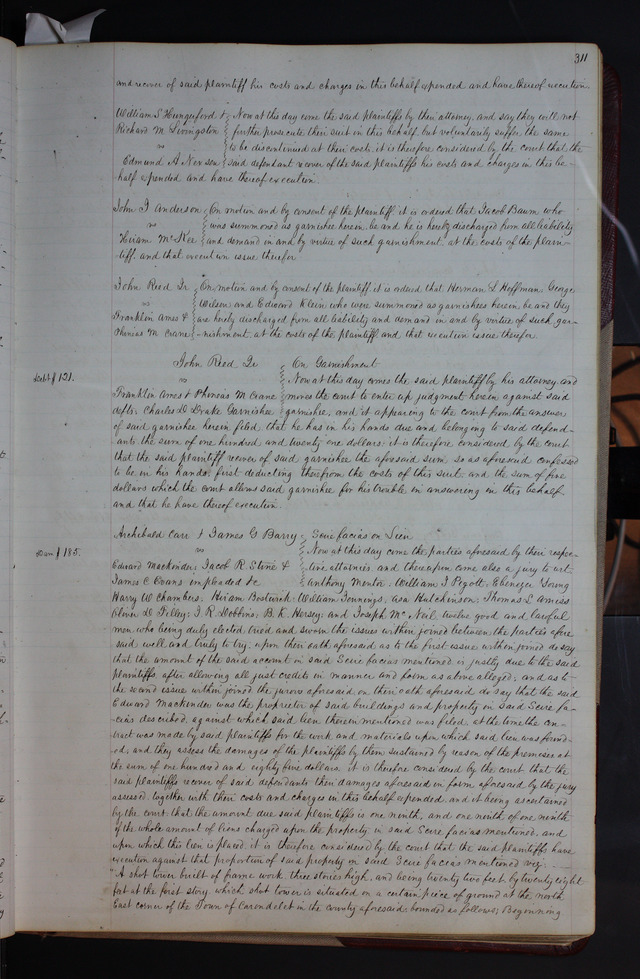 311
and recover of said plaintiff his costs and charges in this behalf expended and have thereof execution
William S Hungerford & Now at this day come the said plaintiffs by their attorney, and say they will not
Richard M Livingston further prosecute their suit in this behalf but voluntarily suffer the same
vs to be discontinued at their costs. it is therefore considered by the court that the
Edmund A said defendant recover of the said plaintiffs his costs and charges in this be-
half expended and have thereof execution.
John F Anderson On motion and by consent of the plaintiff it is ordered that Jacob Baum who
vs was summoned as garnishee herein, be and he is hereby discharged from all liability
Hiram McKee and demand in and by virtue of such garnishment at the costs of the plain-
tiff, and that execution issue therefor
John Reed Jr On motion and by consent of the plaintiff it is ordered that Herman L Hoffman, George
vs Wilson and Edward Klein who were summoned as garnishees herein, be and they
Franklin Ames & are hereby discharged from all liability and demand in and by virtue of such gar-
Phineas M Crane -nishment, at the costs of the plaintiff and that execution issue therefor.
John Reed Jr On Garnishment
debt $121. vs Now at this day comes the said plaintiff by his attorney and
Franklin Ames & Phineas M Crane moves the court to enter up judgment herein against said
defts; Charles D Drake Garnishee garnishee; and it appearing to the court from the answer
of said garnishee herein filed, that he has in his hands due and belonging to said defend-
ants the sum of one hundred and twenty one dollars: it is therefore, considered by the court
that the said plaintiff recover of said garnishee the aforesaid sum, so as aforesaid confessed
to be in his hands, first deducting therefrom the costs of this suit and the sum of five
dollars which the court allows said garnishee for his trouble in answering in this behalf,
and that he have thereof execution.
Archibald Carr & James G Barry Scire facias on Lien
Dam $185. vs Now at this day come the parties aforesaid by their respec-
Edward Mackinder, Jacob R. Stine & tive attornies and thereupon come also a jury to wit
James C Evans impleaded &c Anthony Mentor. William T Pigott; Ebenezer Young
Harry W Chambers; Hiram Bostwick. William Jennings, Asa Hutchinson; Thomas L Amiss
Oliver D Filley; J. R. Dobbins; B. K. Hersey; and Joseph McNeil, twelve good and lawful
men, who being duly elected, tried and sworn the issues within joined between the parties afore
said well and truly to try, upon their oath aforesaid as to the first issue within joined do say
that the amount of the said account in said Scire facias mentioned is justly due to the said
plaintiffs, after allowing all just credits in manner and form as above alleged; and as to
the second issue within joined the jurors aforesaid on their oath aforesaid do say that the said
Edward Mackinder was the proprietor of said buildings and property in said Scire fa-
cias described, against which said lien therein mentioned was filed, at the time the con-
tract was made by said plaintiffs for the work and materials upon which said lien was found-
ed; and they assess the damages of the plaintiffs by them sustained by reason of the premises at
the sum of one hundred and eighty five dollars. it is therefore considered by the court that the
said plaintiffs recover of said defendants their damages aforesaid in form aforesaid, by the jury
assessed, together with their costs and charges in this behalf expended. and it being ascertained
by the court that the amount due said plaintiffs is one ninth, and one ninth of one ninth
of the whole amount of liens charged upon the property in said Scire facias mentioned, and
upon which this lien is placed, it is therefore considered by the court that the said plaintiffs have
execution against that proportion of said property in said Scire facias mentioned viz;
"A shot tower built of frame work, three stories high, and being twenty two feet by twenty eight
feet at the first story, which shot tower is situated on a certain piece of ground at the north
East corner of the Town of Carondelet in the county aforesaid bounded as follows; Beginning